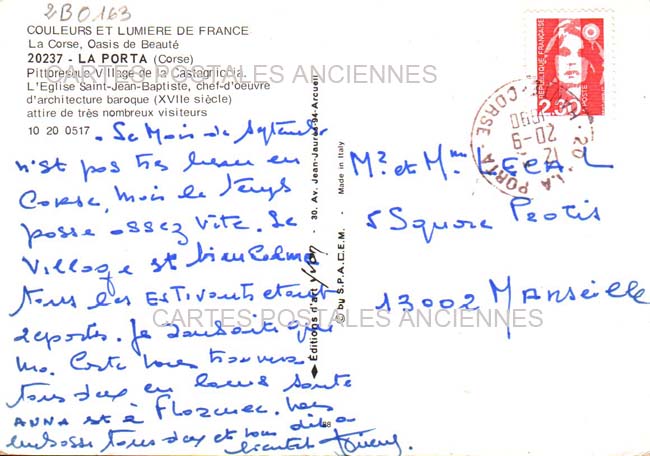 2B0163
COULEURS ET LUMIERE DE FRANCE
La Corse, Oasis de Beauté
20237 - LA PORTA (Corse)
Pittoresque Village de la Castagniccia.
L'Eglise Saint-Jean-Baptiste, chef-d'oeuvre
d'architecture baroque (XVIIe siècle)
attire de très nombreux visiteurs
10 20 0517
CARTES POSTALES ANCIENNES
Le Mois de Septembre
n'est pas très beau en
Corse, mais le temps
passe assez vite. Le
Village est bien calme
tous les Estivants étant
repartis. Je souhaite que
ma Carte vous trouvera
tous deux en bonne santé
ANNA est à Florence. Nous
embrasse tous deux et vous dit à
bientôt
Editions d'art yvon - 30, Av. Jean-Jaurès-94-Arcueil
© DU S.P.A.C.E.M. - Made in Italy
REPUBLIQUE FRANÇAISE
2,30
POSTE
20 - LA PORTA
12
20-9
1990
CORSE
Mr et Mme LECA
5 Square Protis
13002 Marseille
CARTES POSTALES ANCIENNES